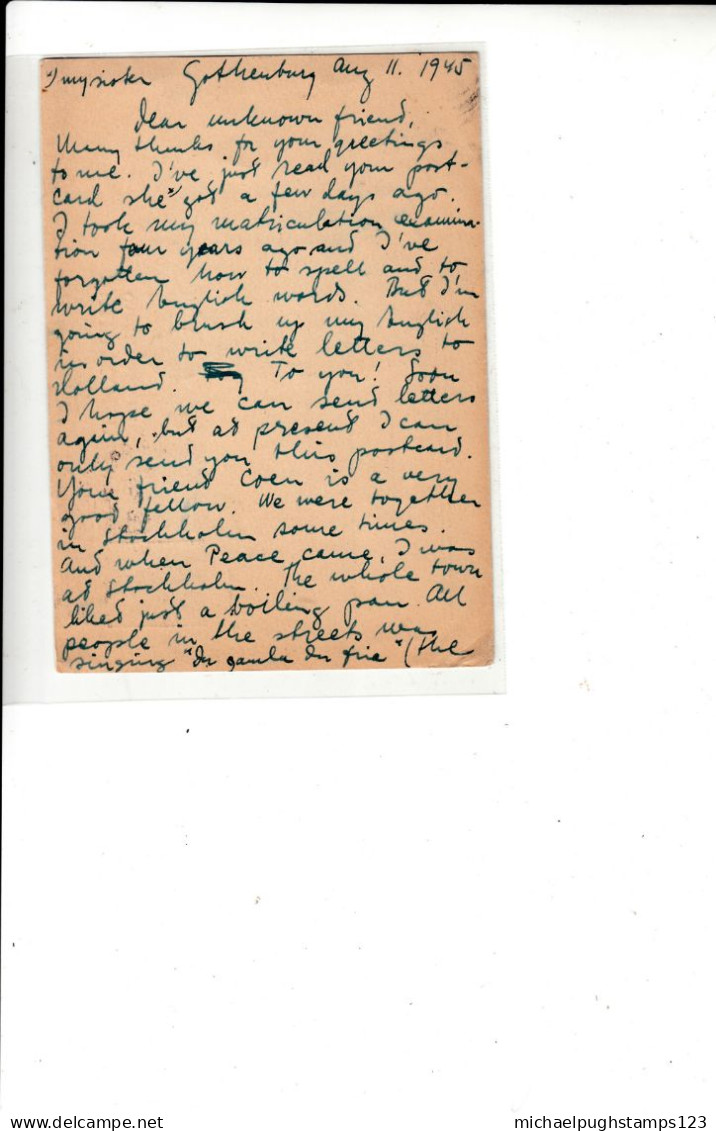 ") my sister Gothenburg Aug 11. 1945
Dear unknown friend,
Many thanks for your greetings
to me. I've just read your post-
card she") got a few days ago.
I took my matriculation examina-
tion four years ago and I've
forgotten how to spell and to
write English words. But I'm
going to brush up my English
in order to write letters to
Holland. To you! Soon
I hope we can send letters
again, but at present I can
only send you this postcard.
Your friend Coen is a very
good fellow. We were together
in Stockholm some times.
And when Peace came, I was
at Stockholm. The whole town
liked just a boiling pan. All
people in the streets was
singing "du gamla du fria" (the
delcampe.net
michaelpughstamps123